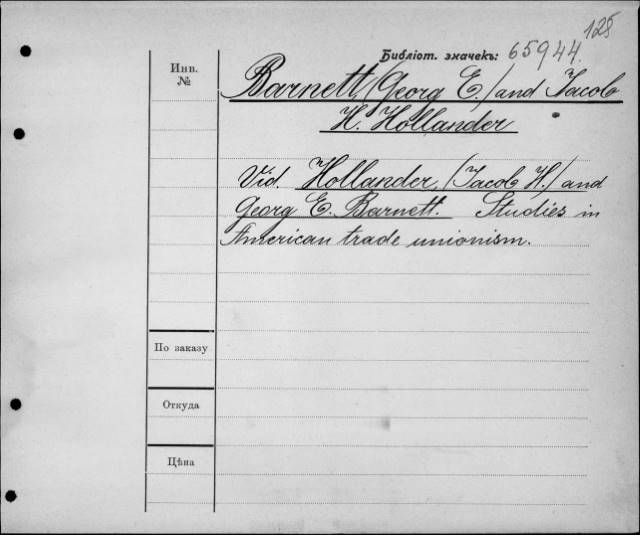 125
Библіот. значекъ: 65944.
Инв.
№
Barnett, (Georg E.) and Jacob
H. Hollander
Vid. Hollander, (Jacob H.) and
Georg E. Barnett. Studies in
American trade unionism.
По заказу
Откуда
Цѣна